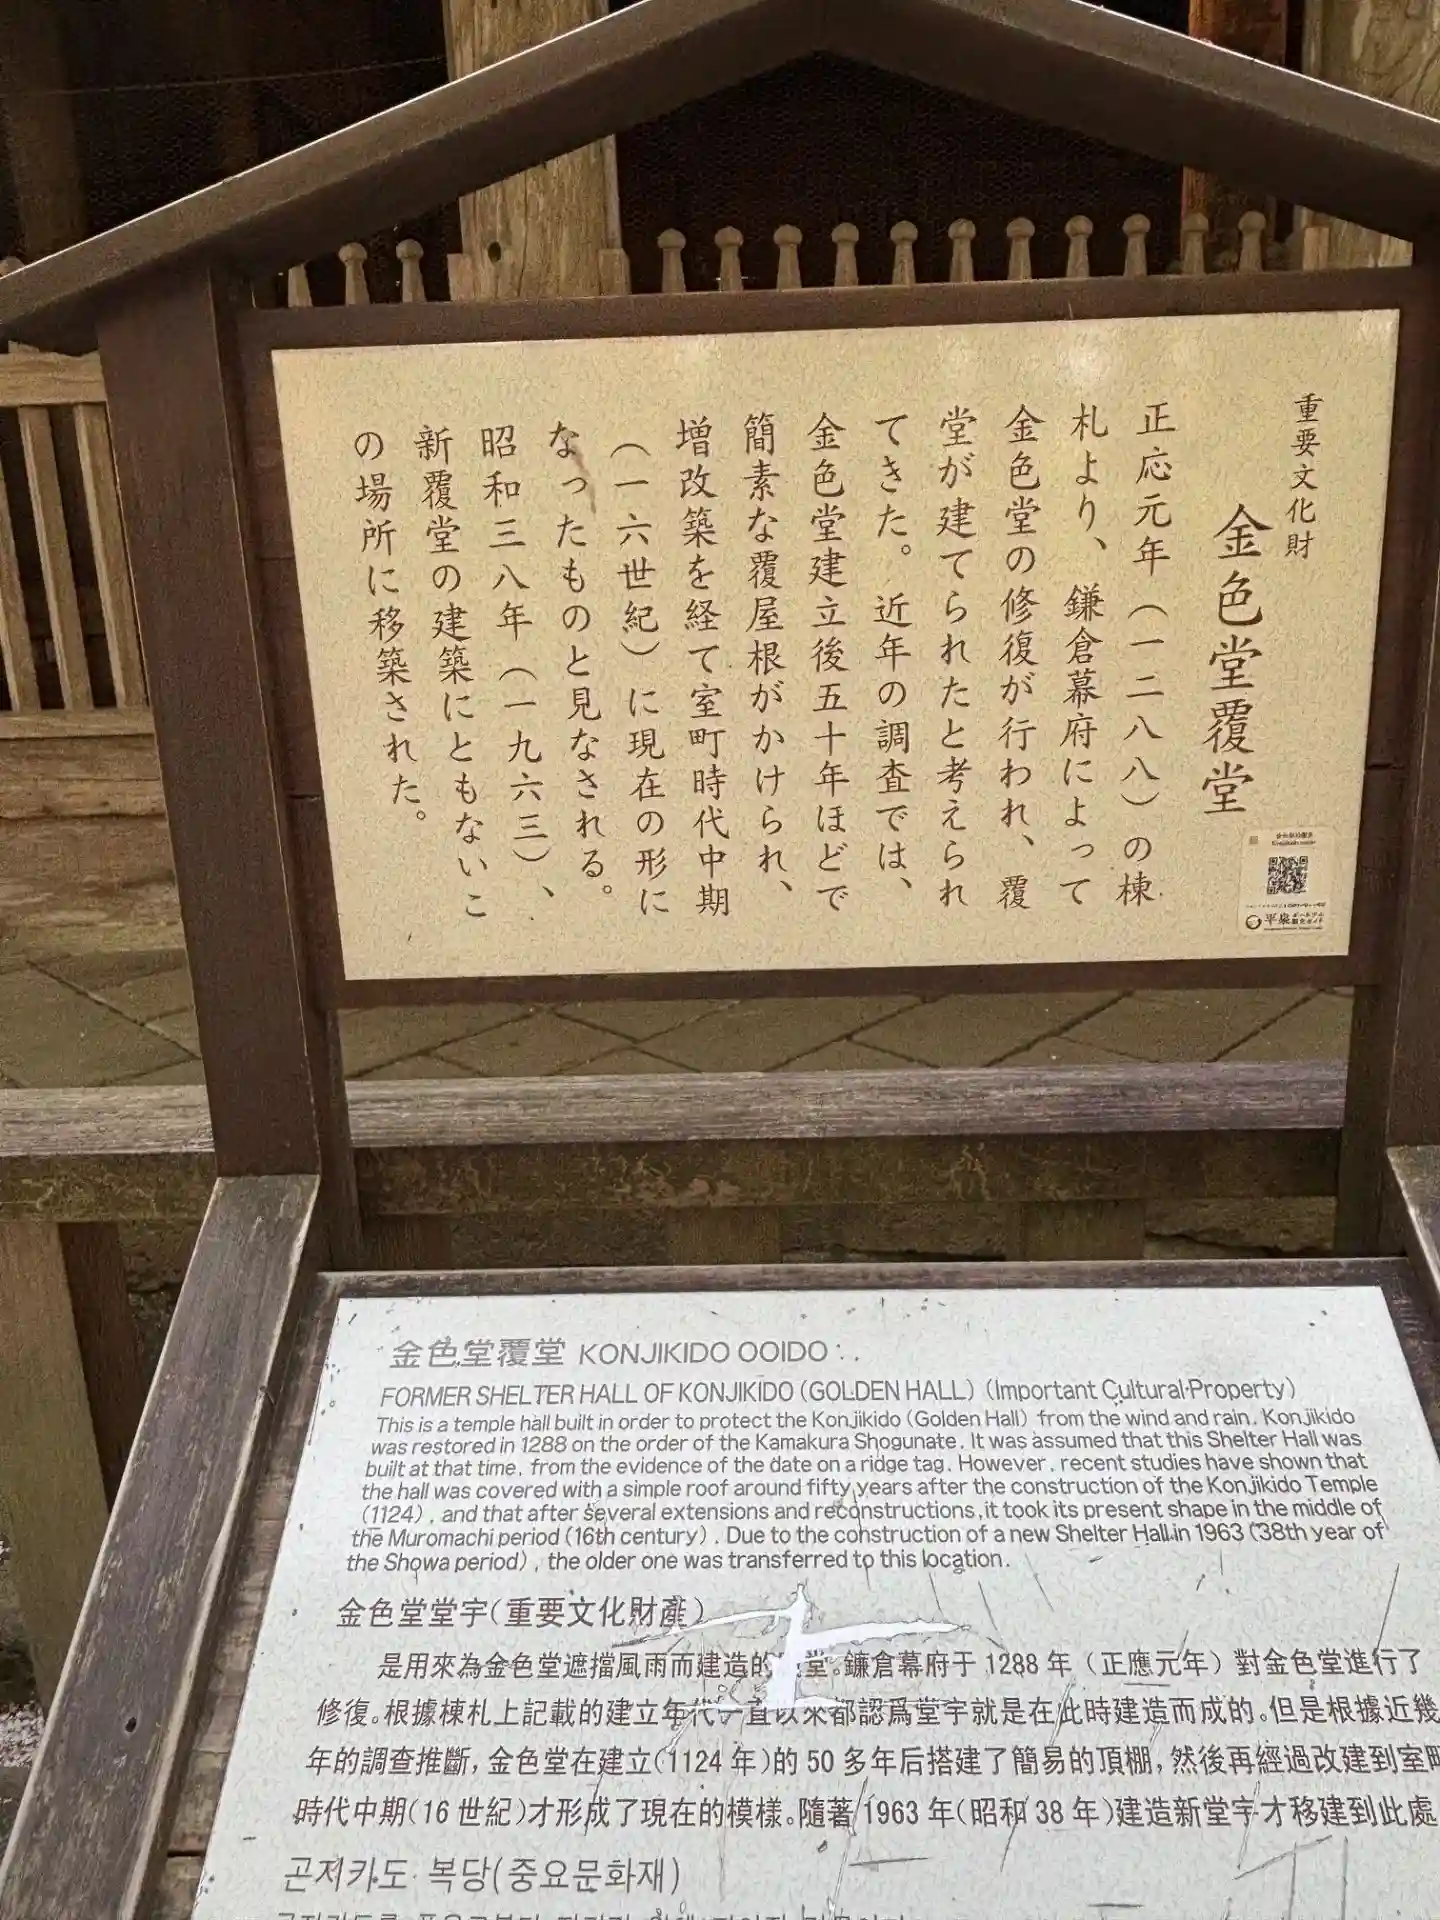 重要文化財
金色堂覆堂
正応元年（一二八八）の棟
札より、鎌倉幕府によって
金色堂の修復が行われ、覆
堂が建てられたと考えられ
てきた。近年の調査では、
金色堂建立後五十年ほどで
簡素な覆屋根がかけられ、
増改築を経て室町時代中期
（一六世紀）に現在の形に
なったものと見なされる。
昭和三八年（一九六三）、
新覆堂の建築にともないこ
の場所に移築された。
平泉
金色堂覆堂 KONJIKIDO OOIDO
FORMER SHELTER HALL OF KONJIKIDO (GOLDEN HALL) (Important Cultural Property)
This is a temple hall built in order to protect the Konjikido (Golden Hall) from the wind and rain. Konjikido
was restored in 1288 on the order of the Kamakura Shogunate. It was assumed that this Shelter Hall was
built at that time, from the evidence of the date on a ridge tag. However, recent studies have shown that
the hall was covered with a simple roof around fifty years after the construction of the Konjikido Temple
(1124), and that after several extensions and reconstructions, it took its present shape in the middle of
the Muromachi period (16th century). Due to the construction of a new Shelter Hall in 1963 (38th year of
the Showa period), the older one was transferred to this location.
金色堂堂宇(重要文化財產)
是用來為金色堂遮擋風雨而建造的 堂。鐮倉幕府于 1288 年（正應元年）對金色堂進行了
修復。根據棟札上記載的建立年代一直以來都認爲堂宇就是在此時建造而成的。但是根據近幾
年的調查推斷，金色堂在建立(1124 年)的 50 多年后搭建了簡易的頂棚，然後再經過改建到室町
時代中期(16 世紀)才形成了現在的模樣。隨著 1963 年(昭和 38 年)建造新堂宇才移建到此處
곤저카도 복당(중요문화재)